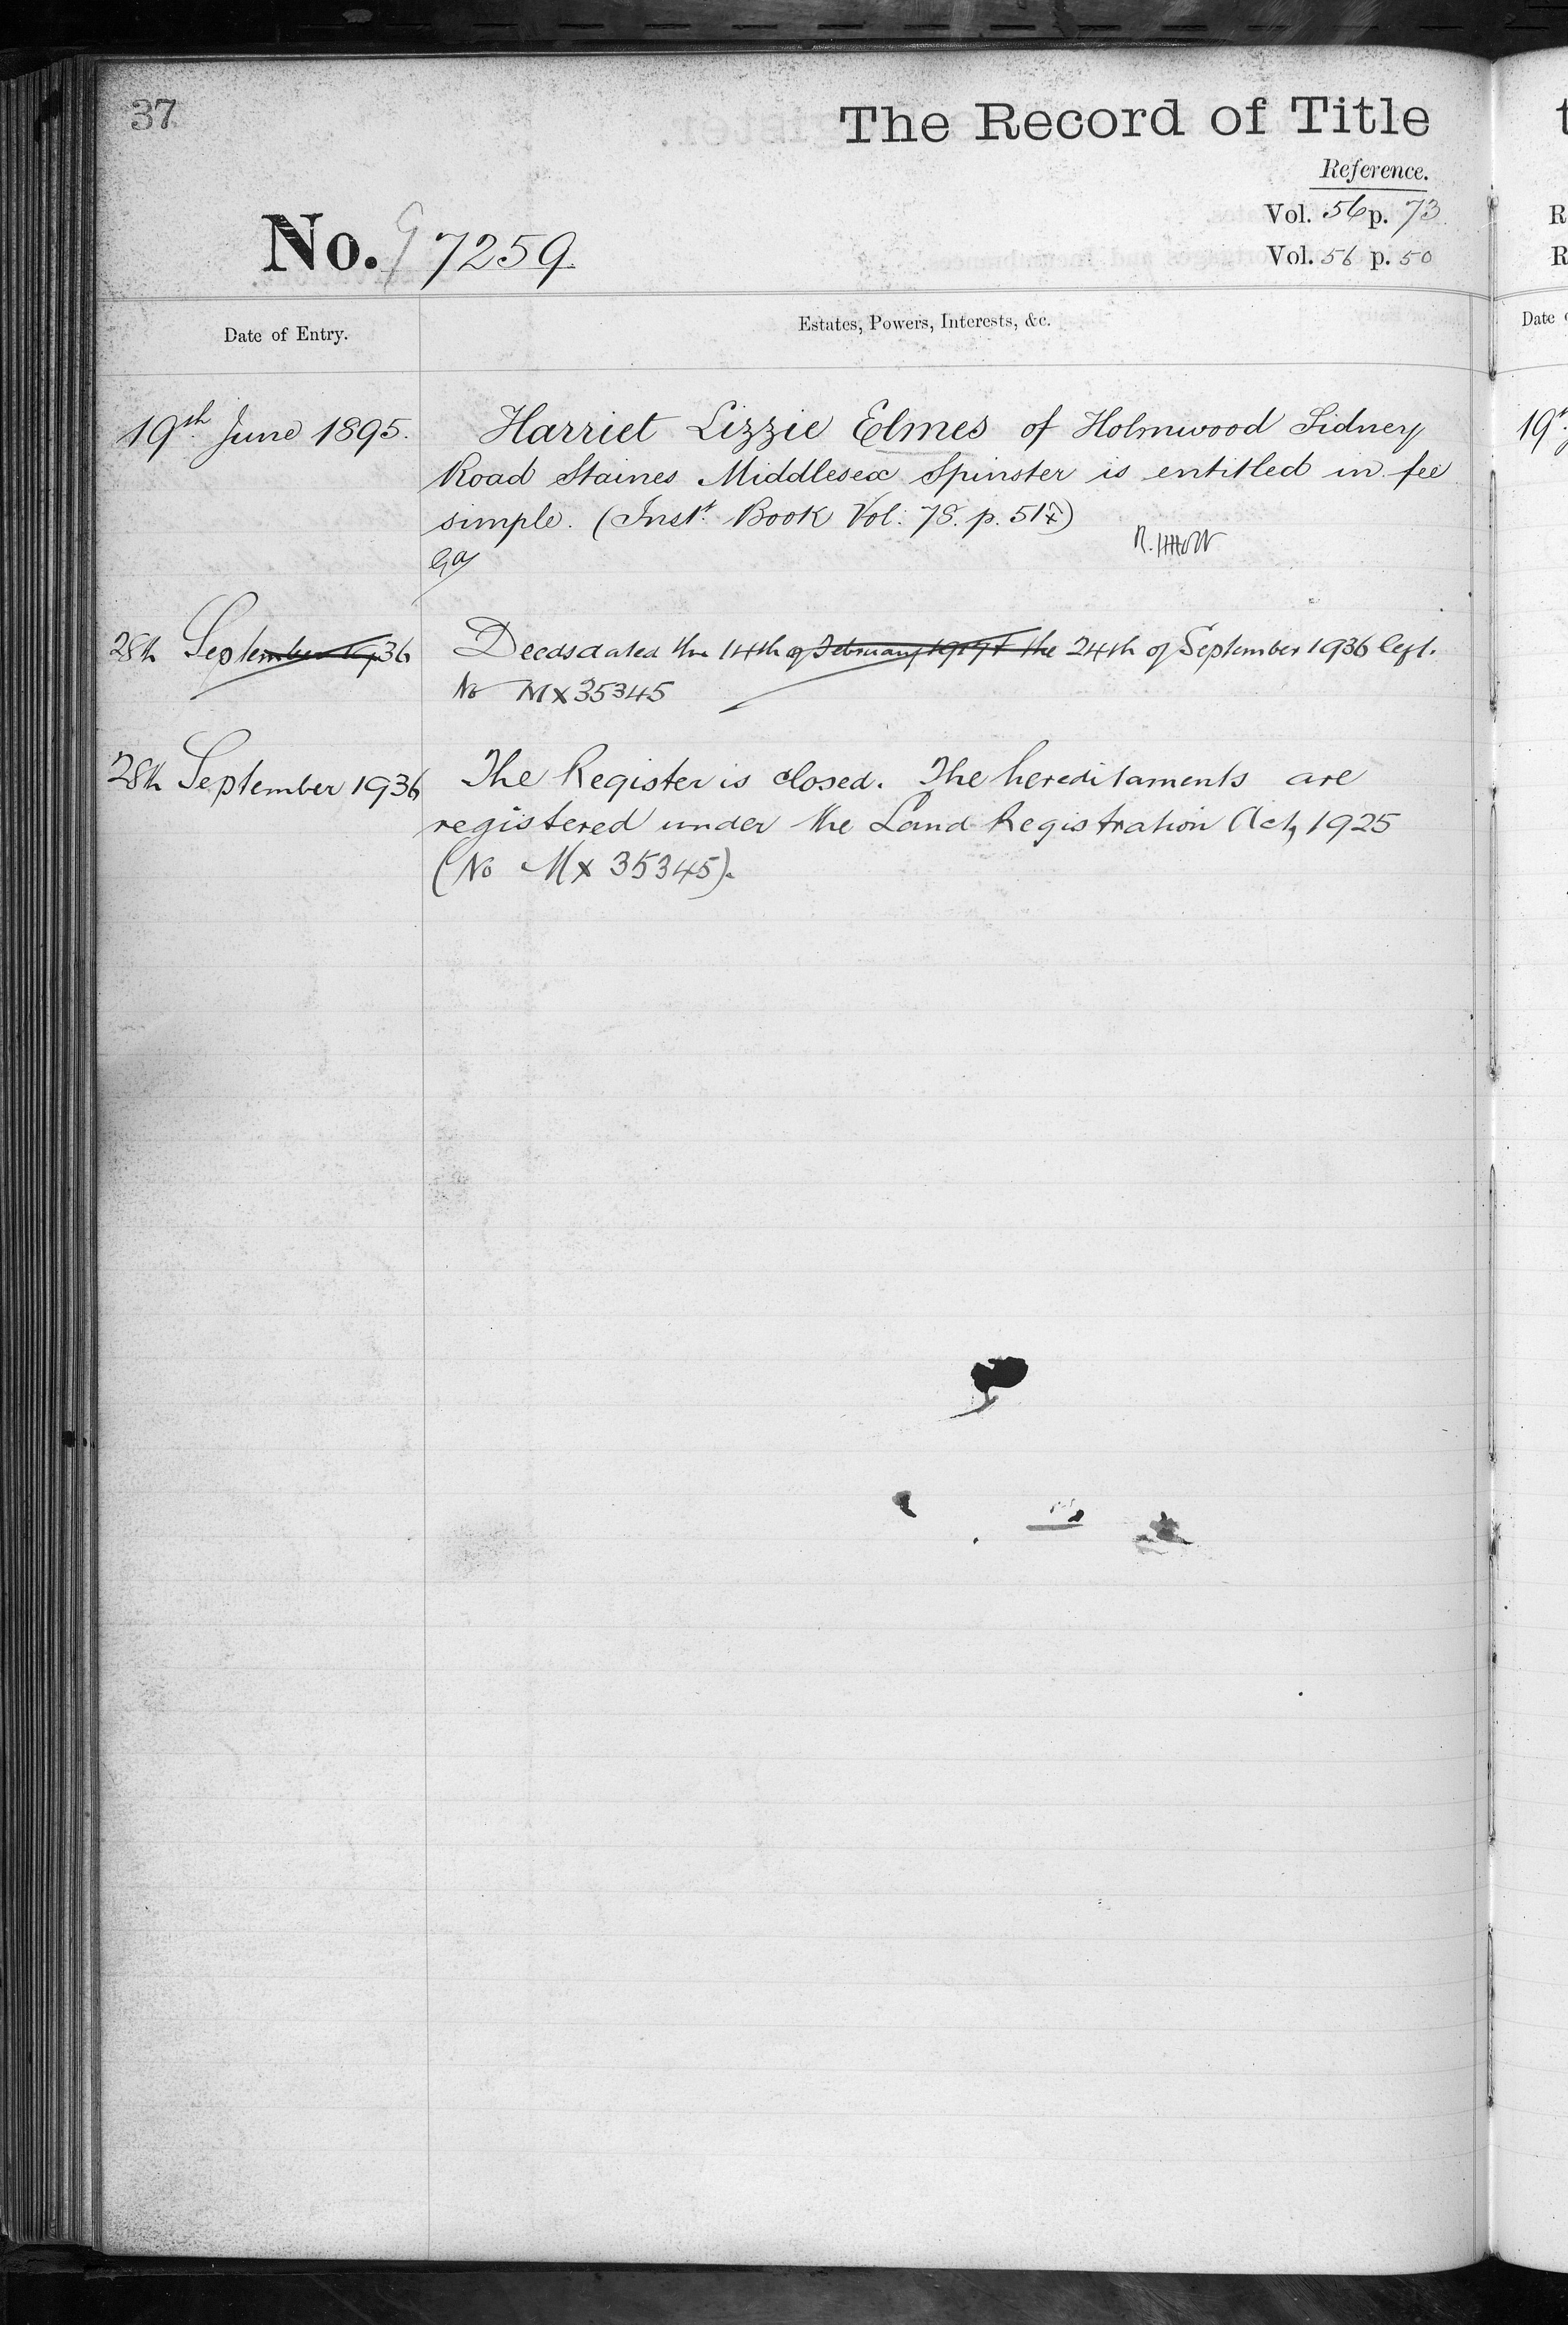 37
The Record of Title
Reference.
Vol. 56 p. 73
No. 7259
Vol. 56 p. 50
Date of Entry.
Estates, Powers, Interests, &c.
19th June 1895.
Harriet Lizzie Elmes of Holmwood Sidney
Road Staines Middlesex Spinster is entitled in fee
simple. (Inst. Book Vol. 78. p. 51)
28th September 1936
Deeds dated the 14th of February 1919 & the 24th of September 1936 left.
No MX35345
28th September 1936
The Register is closed. The hereditaments are
registered under the Land Registration Act, 1925
(No MX 35345).
R
R
Date
19